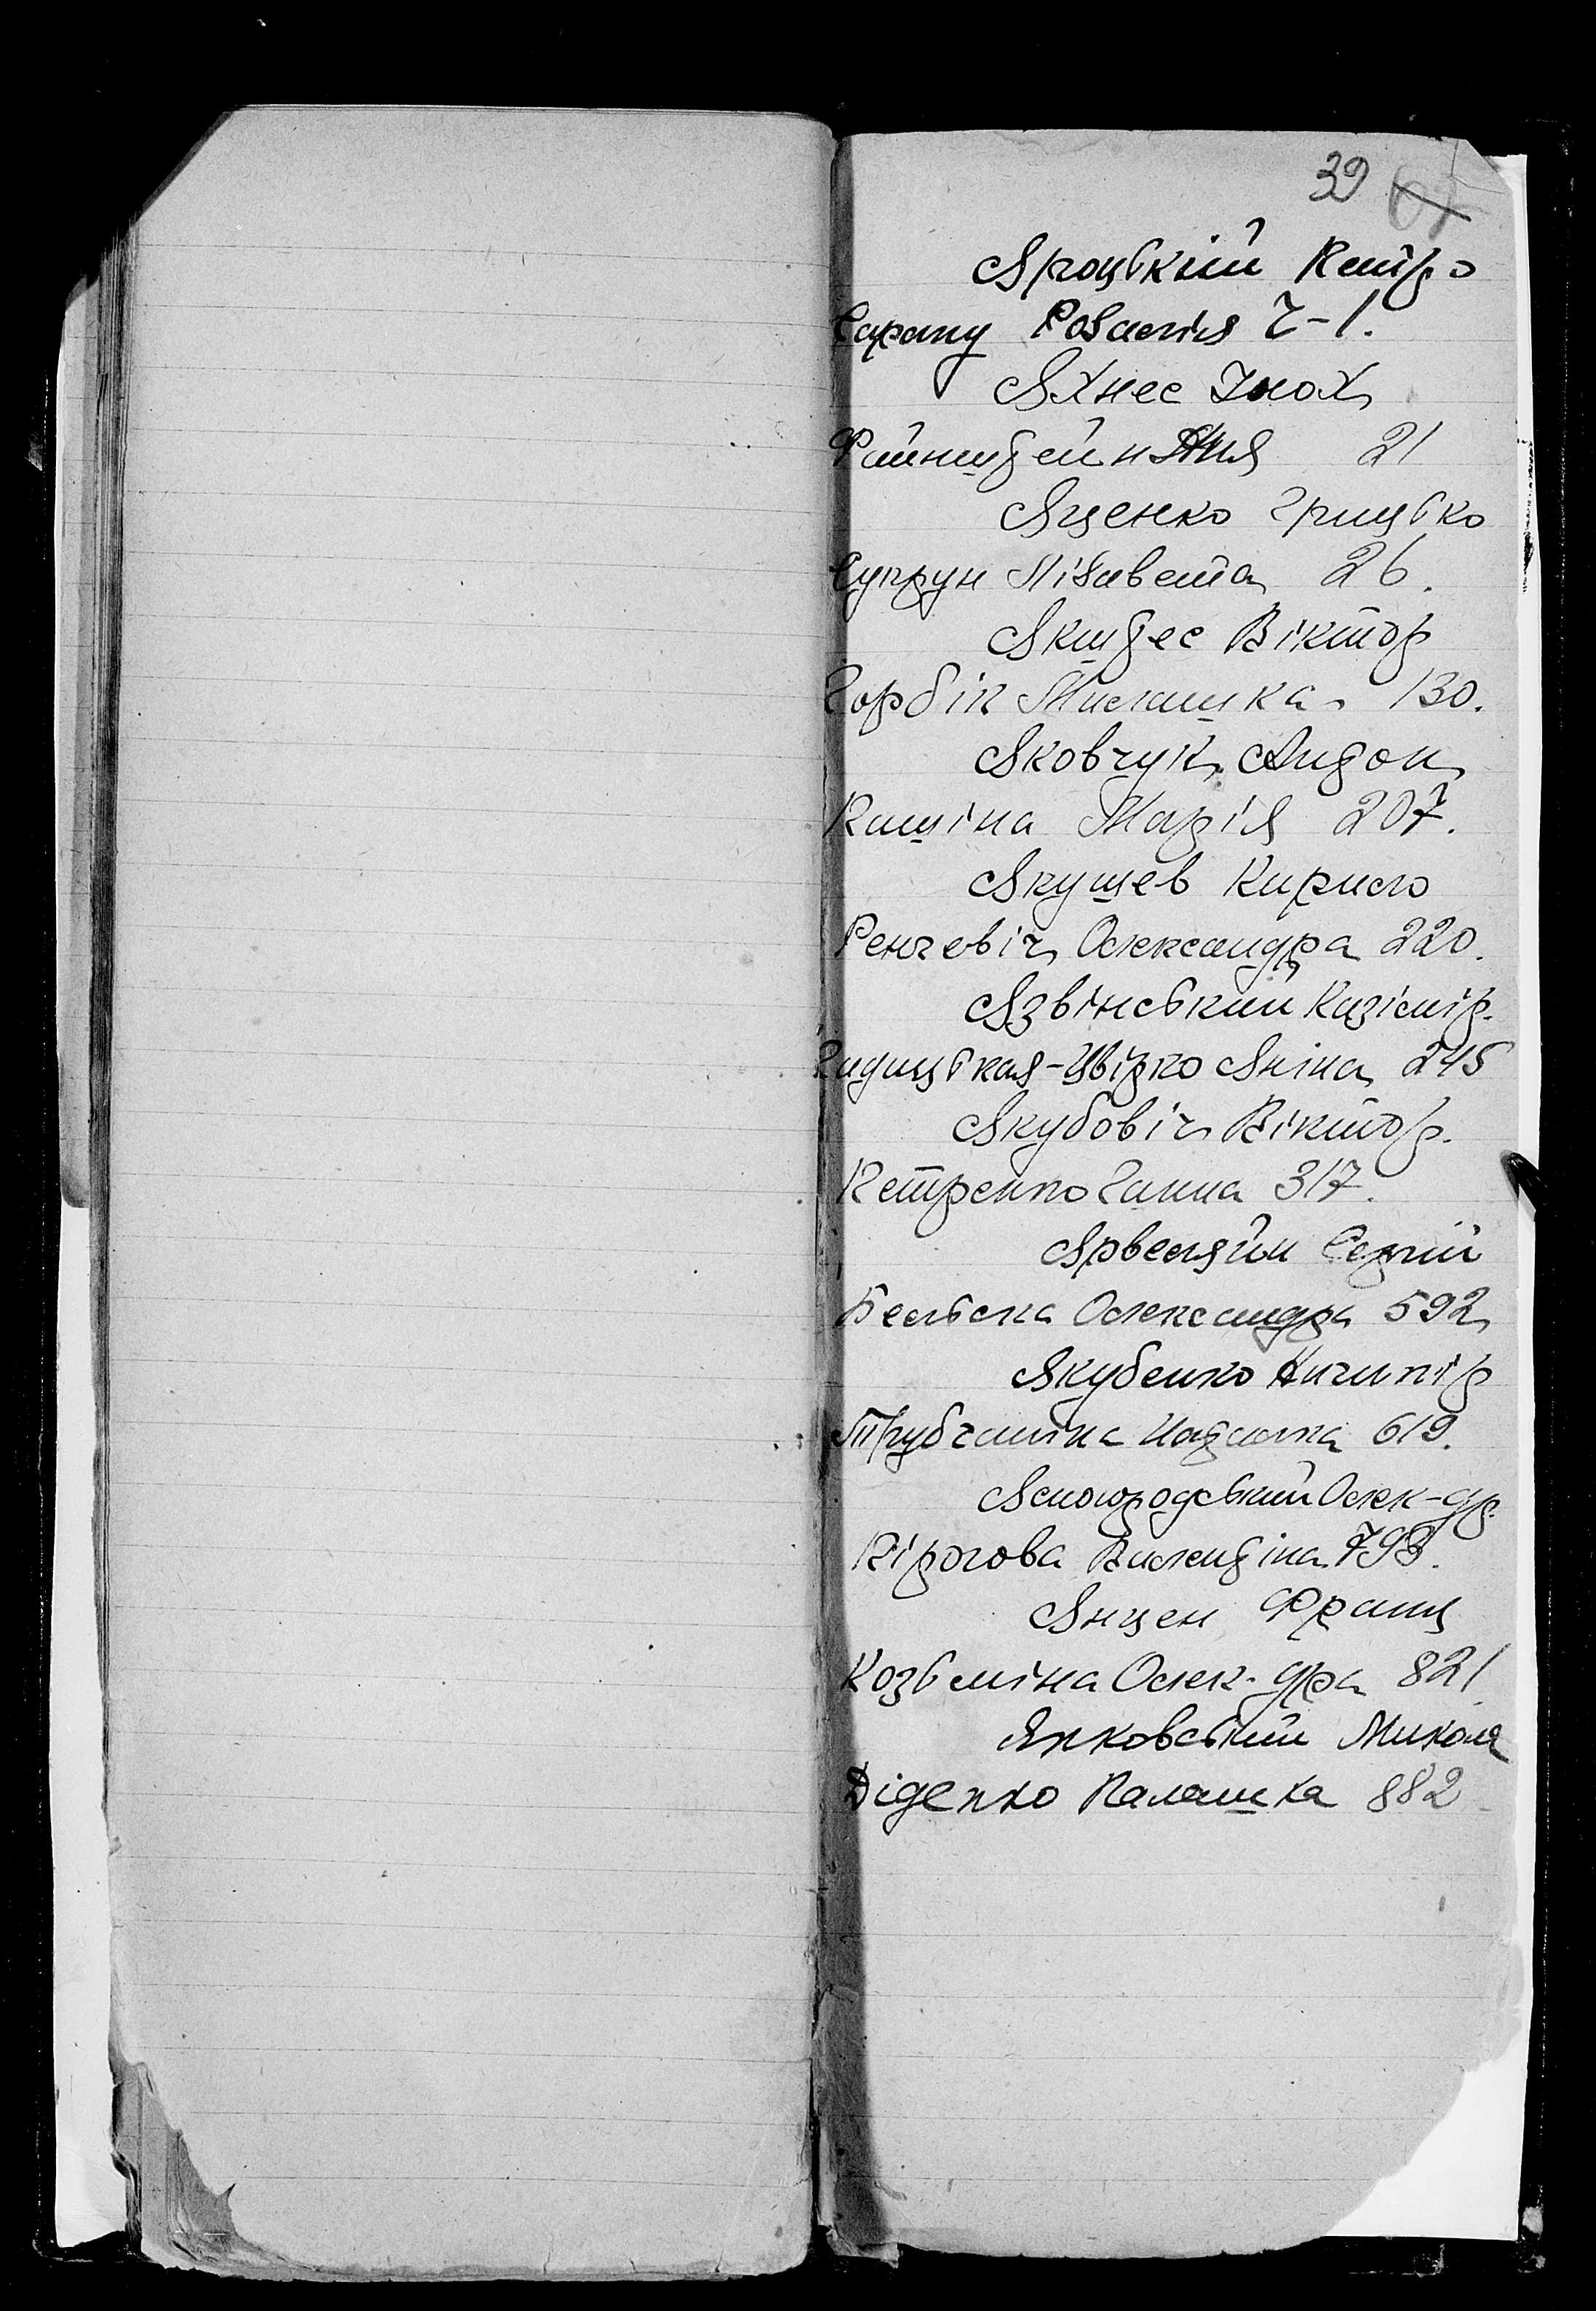 39
Яроцький Петро
Сарапу Розалія Ч-1.
Яхнес Інох
Файнштейн Аня 21
Яценко Грицько
Супрун Лізавета 26.
Якштес Віктор
Горбік Милашка 130.
Яковчук Антон
Кашіна Марія 207.
Якушев Кирило
Ренчевіч Олександра 220.
Язвінський Казімір.
Гидицькая-Цвірко Яніна 245
Якубовіч Віктор.
Петренко Ганна 317.
Ярвеляйн Сергій
Бельска Олександра 592
Якубенко Ничипір
Трубчаніна Наталка 619.
Ясногородський Олек-др.
Пірогова Валентіна 793.
Янцен Франц
Козьміна Олек-дра 821
Янковський Микола
Діденко Палашка 882